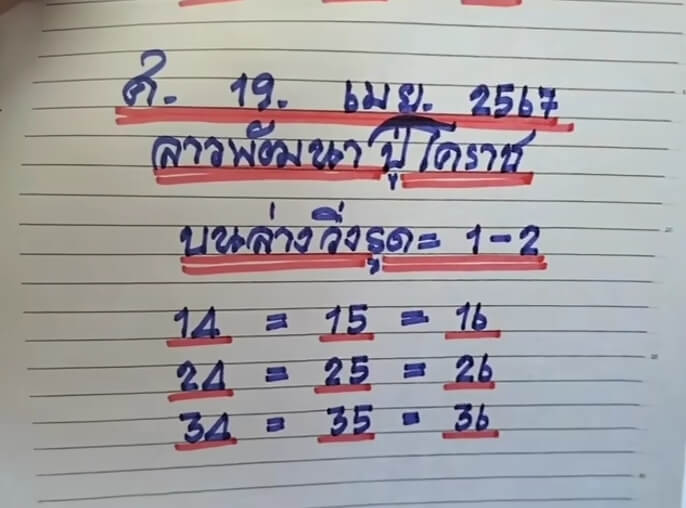 ศ. 19. เมย. 2567
ลาวพัฒนา ปู่โคราช
บนล่างวิ่งรูด= 1-2
14 = 15 = 16
24 = 25 = 26
34 = 35 = 36